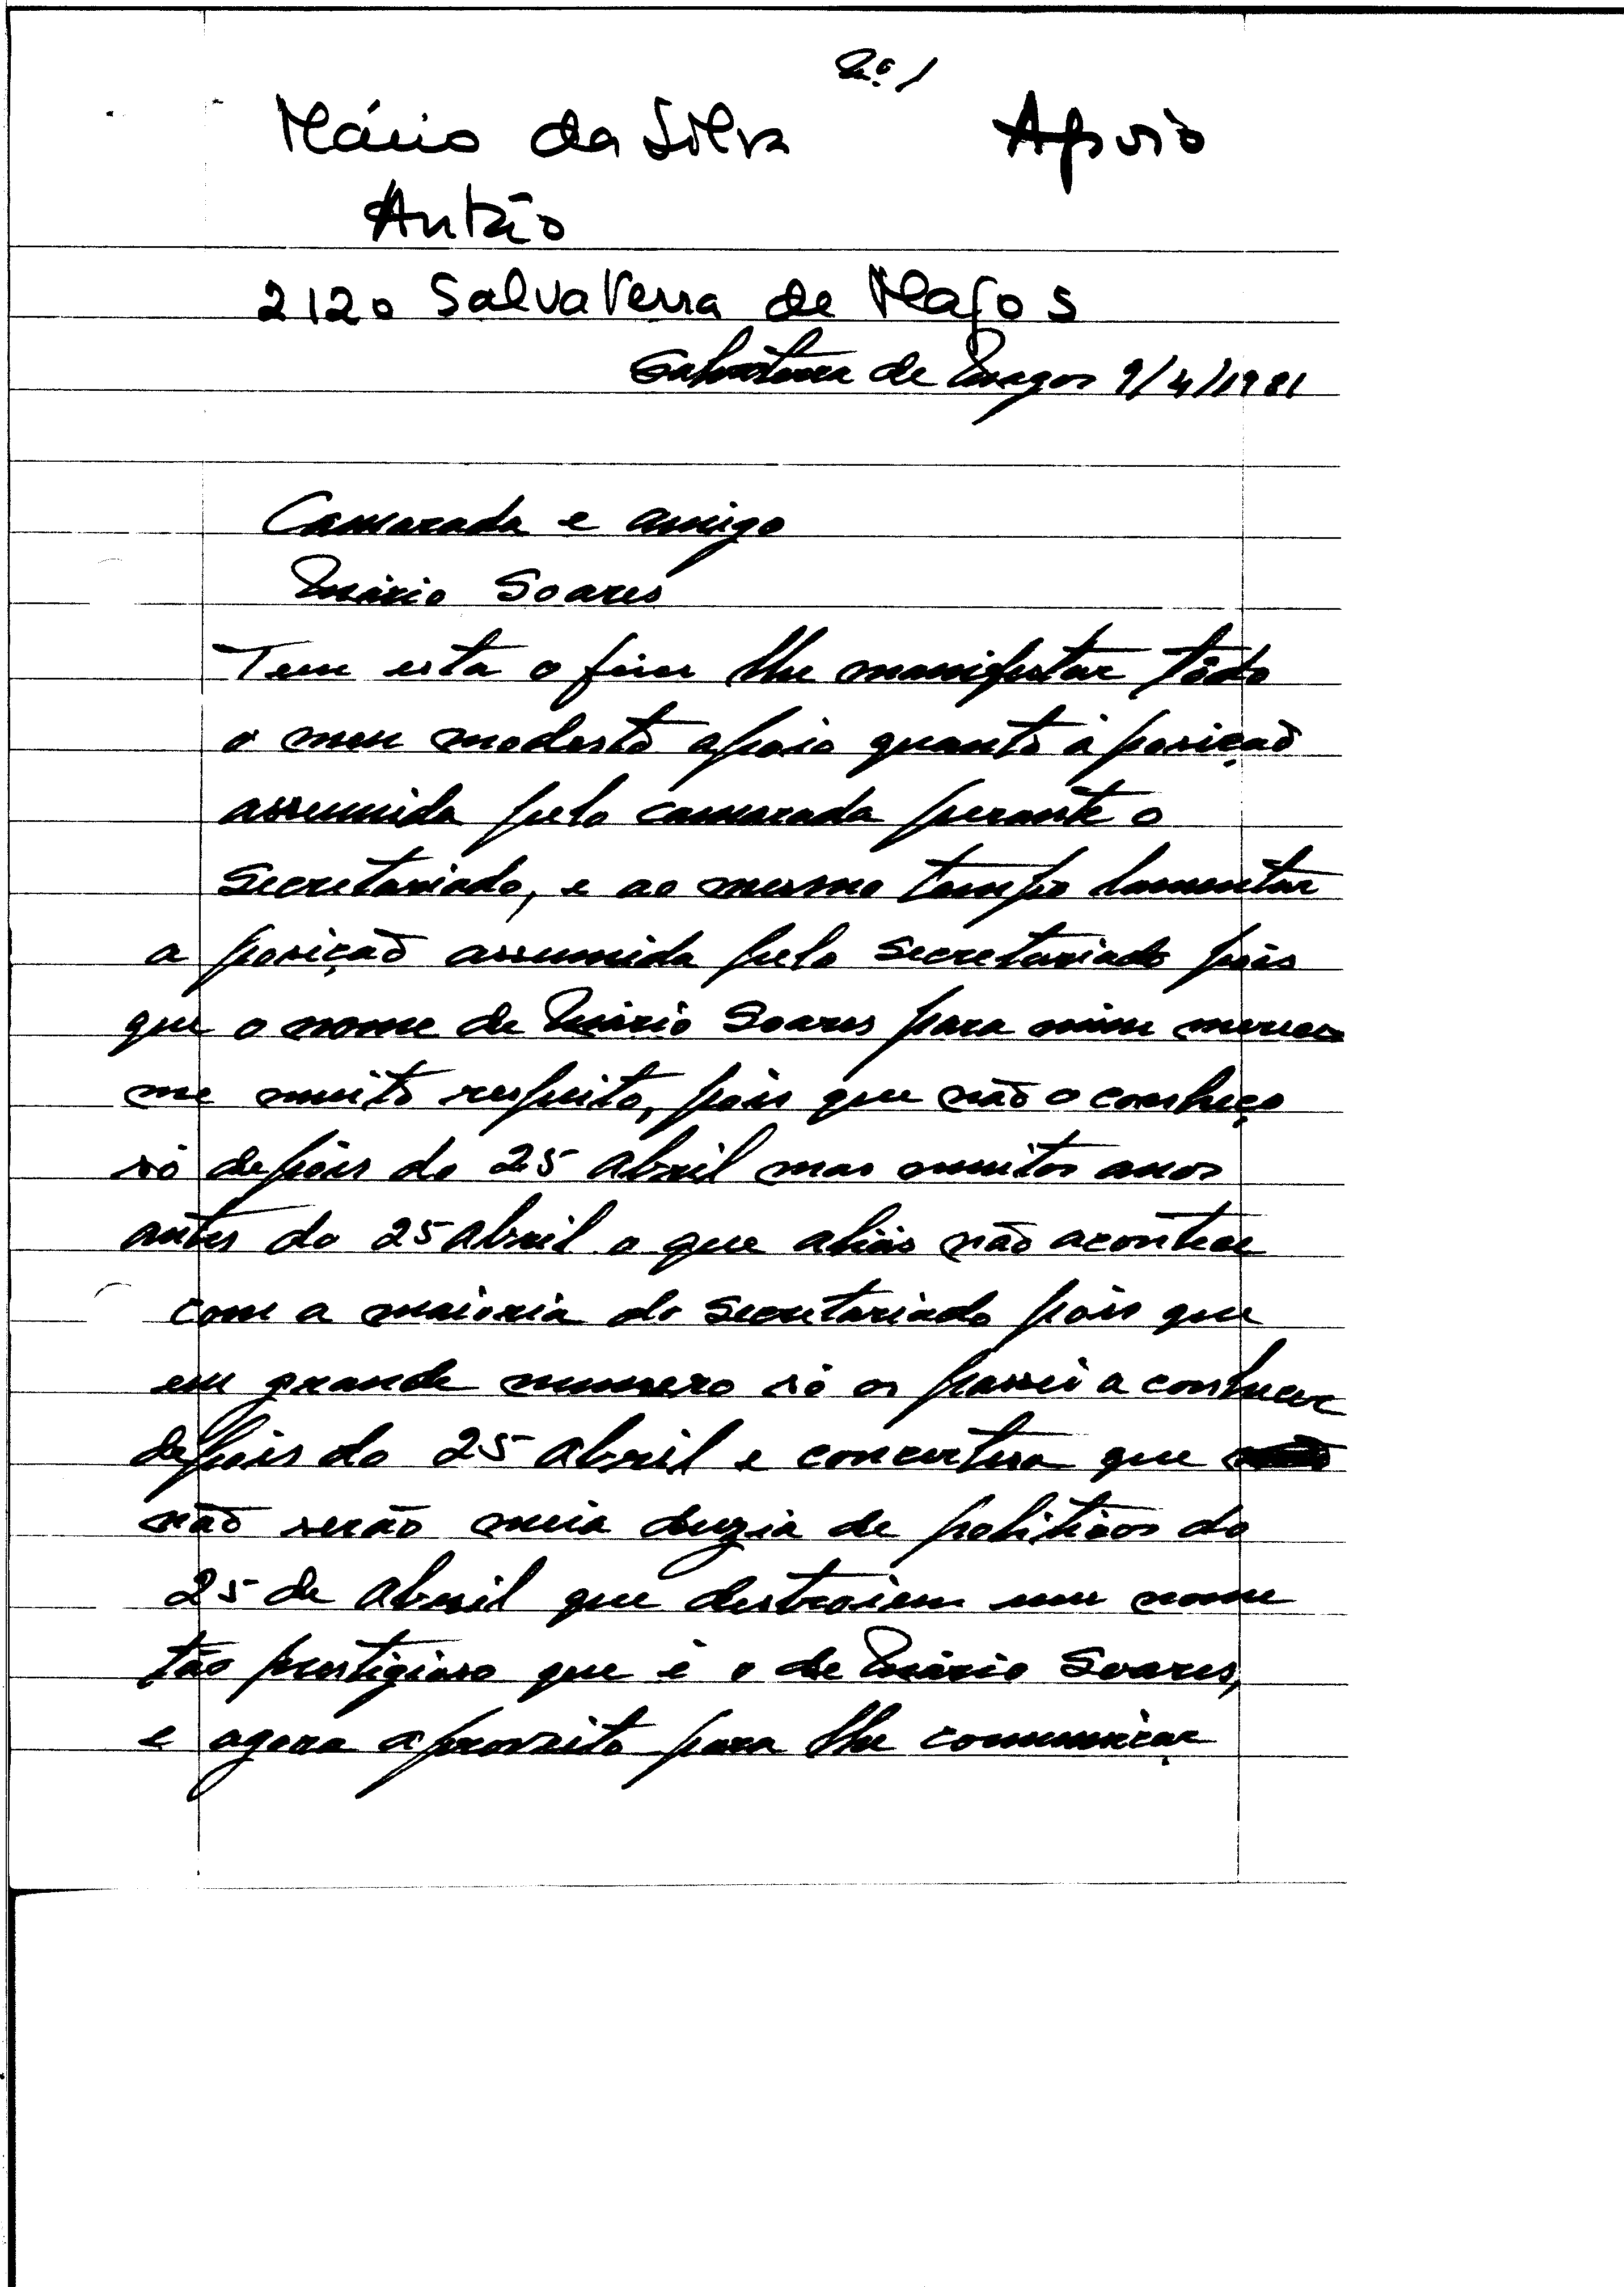 nº 1
Mário da Silva Apoio
Antão
2120 Salvaterra de Magos
Salvaterra de Magos 9/4/1981
Camarada e amigo
Mário Soares
Tem esta o fim lhe manifestar tôdo
o meu modesto apoio quanto á posição
assumida pelo camarada perante o
Secretariado, e ao mesmo tempo lamentar
a posição assumida pelo Secretariado pois
que o nome de Mário Soares para mim merece
me muito respeito, pois que não o conheço
só depois do 25 Abril mas muitos anos
antes do 25 Abril o que aliás não acontece
com a maioria do Secretariado pois que
em grande numero só os passei a conhecer
depois do 25 Abril e concerteza que
não serão meia duzia de politicos do
25 de Abril que destroiem um nome
tão prestigioso que é o de Mário Soares,
e agora aproveito para lhe comuniçar